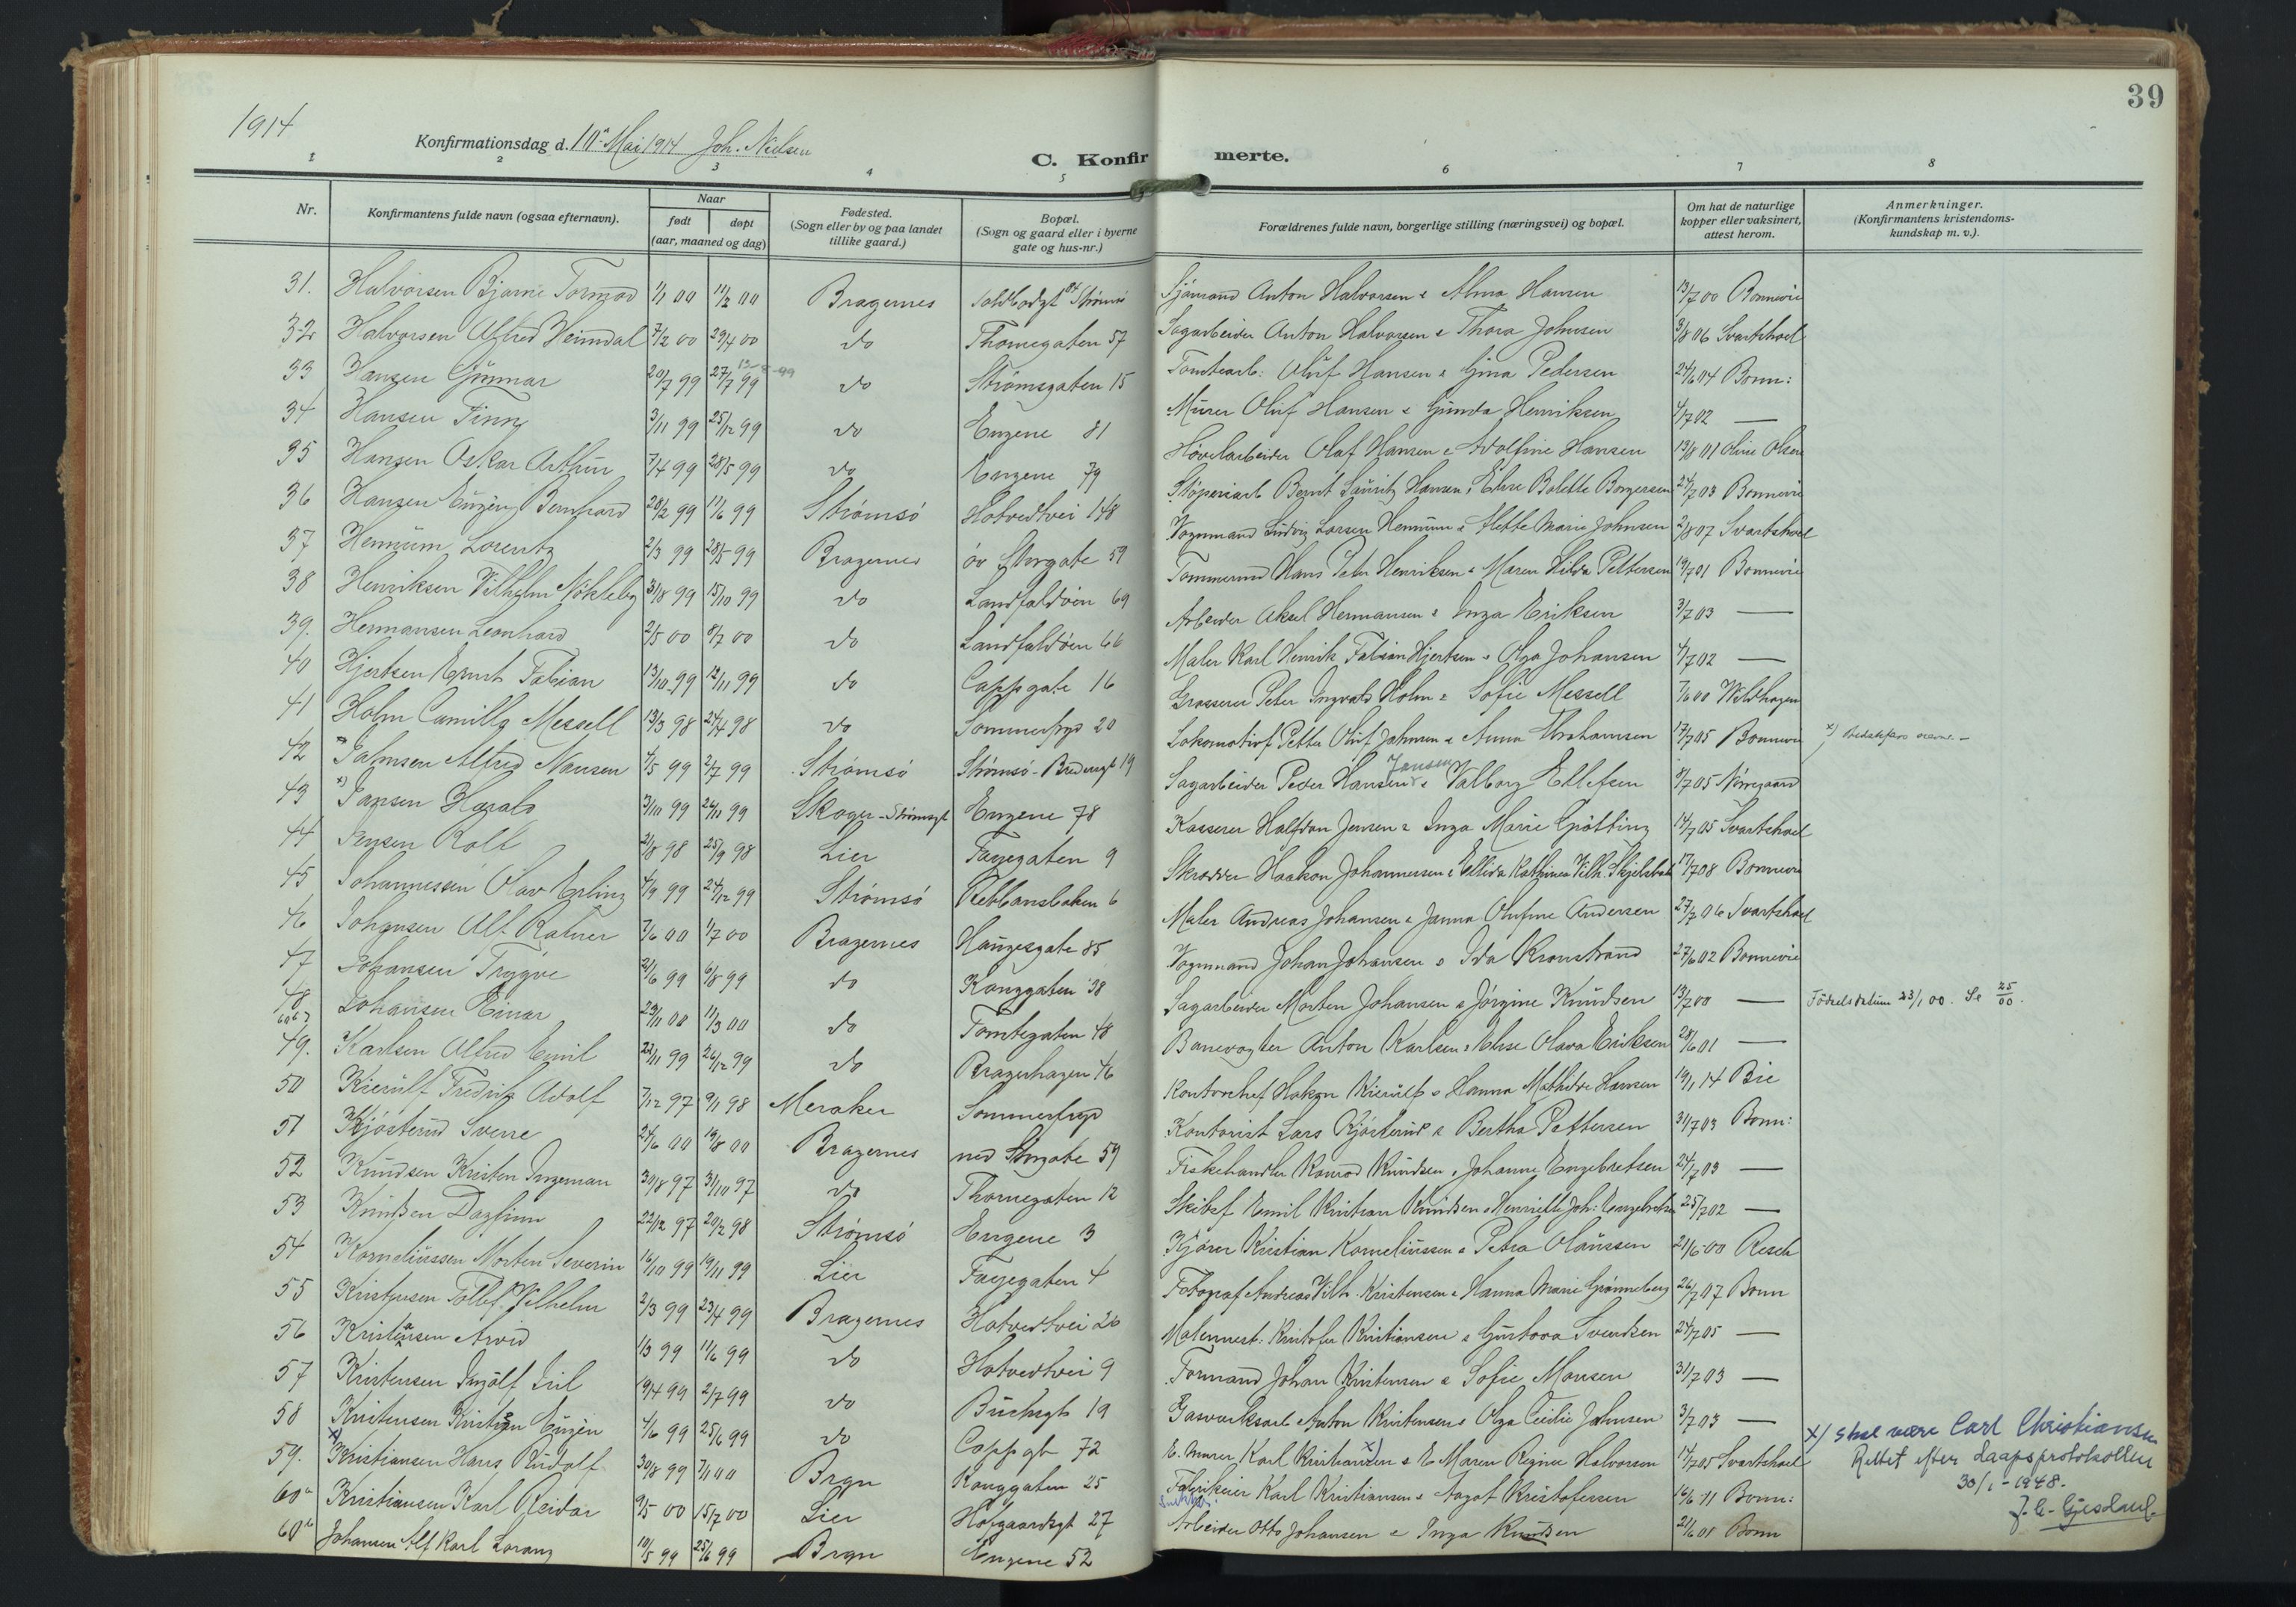 39
1914
Konfirmationsdag d. 10de Mai 1914 Joh. Nielsen
C. Konfirmerte.
1 2 3 4 5 6 7 8
Nr. Konfirmantens fulde navn (ogsaa efternavn). Naar født døpt (aar, maaned og dag) Fødested. (Sogn eller by og paa landet tillike gaard.) Bopæl. (Sogn og gaard eller i byerne gate og hus-nr.) Forældrenes fulde navn, borgerlige stilling (næringsvei) og bopæl. Om hat de naturlige kopper eller vaksinert, attest herom. Anmerkninger. (Konfirmantens kristendoms-kundskap m. v.).
31. Halvorsen Bjarne Tormod 1/1 00 11/2 00 Bragernes Toldbodgt Strømsö Sjömand Anton Halvorsen & Alma Hansen 13/7 00 Bonnevie
32 Halvorsen Alfred Heimdal 7/2 00 29/4 00 do Thornegaten 57 Sagarbeider Anton Halvorsen & Thora Johnsen 3/8 06 Svartshoel
33 Hansen Gunnar 20/7 99 27/7 99 do Strømsgaten 15 Tomtearb: Oluf Hansen & Gina Pedersen 24/6 04 Bonn:
34 Hansen Finn 3/11 99 25/12 99 do Engene 81 Murer Oluf Hansen & Gunda Henriksen 4/7 02 —
35 Hansen Oskar Arthur 7/4 99 28/5 99 do Engene 79 Hövelarbeider Olaf Hansen & Adolfine Hansen 13/8 01 Oline Olsen
36 Hansen Eugen Bernhard 28/2 99 11/6 99 Strømsö Hotvedtvei 148 Støperiarb Bernt Lauritz Hansen, Else Bolette Borgersen 24/7 03 Bonnevie
37 Hennum Lorentz 2/3 99 28/5 99 Bragernes öv Storgate 59 Vognmand Ludvig Larsen Hennum & Mette Marie Johnsen 2/8 07 Svartshoel
38 Henriksen Vilhelm Nökleby 31/8 99 15/10 99 do Landfaldöen 69 Tømmermd Hans Peter Henriksen & Maren Hilda Pettersen 19/7 01 Bonnevie
39. Hermansen Leonhard 2/5 00 8/7 00 do Landfaldöen 66 Arbeider Aksel Hermansen & Inga Eriksen 3/7 03 —
40 Hjertsen Ernst Fabian 13/10 99 12/11 99 do Cappgate 16 Maler Karl Henrik Fabian Hjertsen & Olga Johansen 4/7 02 —
41 Holm Camillo Messell 13/3 98 24/4 98 do Sommerfryd 20 Grosserer Peter Ingvald Holm & Sofie Messell 7/6 00 Wildhagen
42 Jahnsen Alfred Nansen 4/5 99 2/7 99 Strømsö Strømsö - Bredersgt 19 Lokomotivf Petter Oluf Jahnsen & Anna Abrahamsen 17/7 05 Bonnevie
43 x) Jansen Harald 3/10 99 26/11 99 Skoger - Strømsgt Engene 78 Sagarbeider Peder Hansen Jansen & Valborg Ellefsen 8/7 05 Nørregaard
44 Jensen Rolf 2/8 98 25/9 98 Lier Fayegaten 9 Kasserer Halfdan Jensen & Inga Marie Gjötting 14/7 05 Svartshoel
45 Johannessen Olav Erling 4/9 99 24/12 99 Strømsö Rebbansbakken 6 Skrædder Haakon Johannessen & Ellida Kathinea Vilh. 17/7 08 Bonnevie
46 Johansen Alf Ratner 7/6 00 1/7 00 Bragernes Haugesgate 85 Maler Andreas Johansen & Janna Olufine Andersen 27/7 06 Svartshoel
47 Johansen Trygve 21/6 99 6/8 99 do Konggaten 38 Vognmand Johan Johansen & Ida Kronstrand 27/6 02 Bonnevie
48 Johansen Einar 23/11 00 11/3 00 do Tomtegaten 48 Sagarbeider Morten Johansen & Jörgine Knudsen 13/7 00 — Födselsdatum 23/1 00. Se 25/00.
49. Karlsen Alfred Emil 22/11 99 26/12 99 do Bragerhagen 46 Banevogter Anton Karlsen & Else Olava Eriksen 28/6 01 —
50 Kierulf Fredrik Adolf 7/12 97 9/1 98 Meraker Sommerfryd Kontorchef Hakon Kierulf & Hanna Mathilde Hansen 19/1 14 Bie
51 Kjösterud Sverre 24/6 00 19/8 00 Bragernes ned Storgate 59 Kontorist Lars Kjösterud & Bertha Pettersen 31/7 03 Bonn:
52 Knudsen Kristen Ingeman 30/8 97 31/10 97 do Thornegaten 12 Fiskehandler Konrad Knudsen & Johanne Engebretsen 24/7 03 —
53 Knudsen Dagfinn 22/12 97 20/2 98 Strømsö Engene 3 Skibsf Emil Kristian Knudsen & Henriette Joh: Engebretsen 25/7 02 —
54 Korneliussen Morten Severin 16/10 99 19/11 99 Lier Fayegaten 4 Kjører Kristian Korneliussen & Petra Olaussen 21/6 00 Resch
55 Kristensen Tollef Vilhelm 2/3 99 23/4 99 Bragernes Hotvedtvei 20 Fotograf Andreas Vilh. Kristensen & Hanna Marie Grönneberg 26/7 07 Bonn
56 Kristiansen Arvid 1/3 99 11/6 99 do Hotvedtvei 9 Malermest. Kristofer Kristiansen & Gustava Svendsen 24/7 05 —
57 Kristensen Ingolf Juel 19/4 99 2/7 99 do Buchsgt 19 Formand Johan Kristensen & Sofie Monsen 31/7 03 —
58 Kristensen Kristian Eugen 4/6 99 25/6 99 do Cappgt 72 Gasverksarb Anton Kristensen & Olga Cecilie Jahnsen 3/7 03 —
59. x) Kristiansen Hans Rudolf 30/8 99 7/1 00 Brgn Konggaten 25 E. Murer Karl Kristiansen x) & E Maren Regine Halvorsen 14/7 05 Svartshoel
x) skal være Carl Christiansen
Rettet efter daapsprotokollen
30/1 - 1948.
60a Kristiansen Karl Reidar 9/5 00 15/7 00 Lier Hofgaardsgt 27 Fabrikeier Karl Kristiansen & Aagot Kristofersen 16/6 11 Bonn:
60b Johansen Alf Karl Lorang 10/5 99 25/6 99 Brgn Engene 52 Arbeider Otto Johansen & Inga Knudsen 21/6 01 Bonn